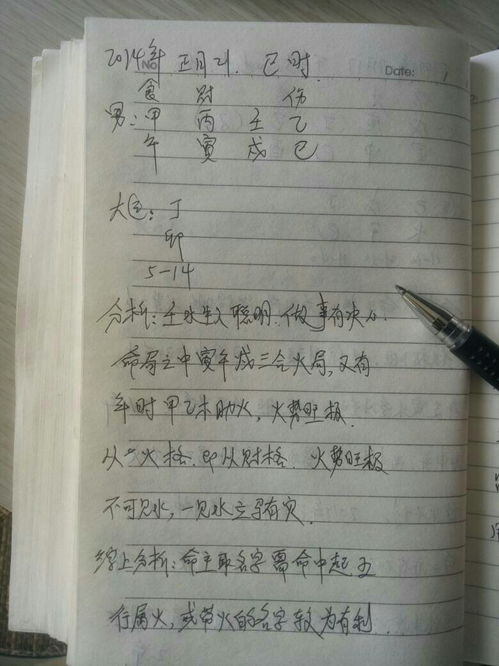 2014年 正月21. 巳时.
No
Date:
食 财 伤
男:甲 丙 壬 乙
午 寅 戌 巳
大运: 丁
卯
5-14
分析:壬水生人聪明.做事有决心.
命局之中寅午戌三合火局,又有
年时甲乙木助火,火势旺极.
从火格.即从财格.火势旺极
不可见水,一见水立马有灾.
综上分析:命主取名字需命中起五
行属火,或带火的名字较为有利.